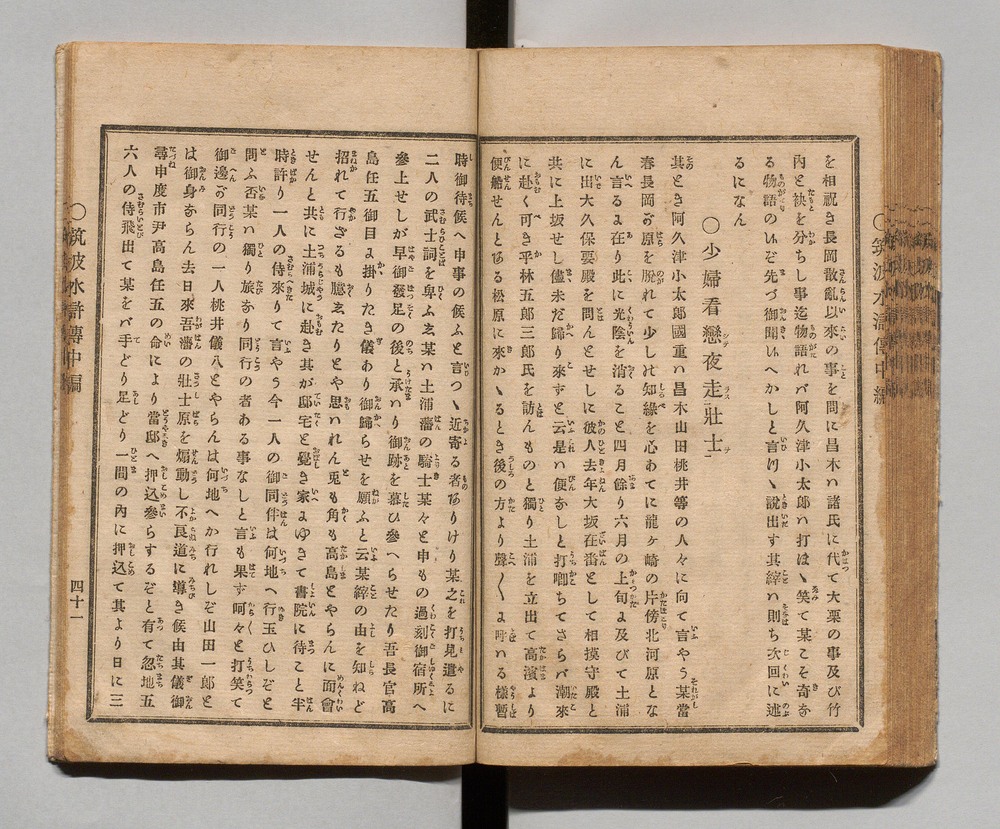 〇筑波水滸傳中編
を相祝き長岡散亂以來の事を問に昌木ハ諸氏に代て大栗の事及び竹
內と袂を分ちし事迄物語れバ阿久津小太郎ハ打ほゝ笑て某こそ奇な
る物語のいぞ先づ御聞いへかしと言けゝ說出す其綷ハ則ち次回に述
るになん
〇少婦看戀夜走壯士
其とき阿久津小太郎國重ハ昌木山田桃井等の人々に向て言やう某當
春長岡お原を脫れて少しは知緣を心あてに龍ヶ崎の片傍北河原とな
ん言るよ在り此に光陰を消ること四月餘り六月の上旬よ及びて土浦
に出大久保要殿を問んとせしに彼人去年大坂在番として相摸守殿と
共に上坂せし儘未だ歸り來ずと云是ハ便なしと打喞ちてさらバ潮來
に赴く可き平林五郎三郎氏を訪んものと獨り土浦を立出て高濱より
便船せんとある松原に來かゝるとき後の方より聲〱よ呼いる樣暫
時御待候へ申事の候ふと言つゝ近寄る者ありけり某之を打見遣るに
二人の武士詞を卑ふゑ某ハ土浦藩の騎士某々と申もの過刻御宿所へ
參上せしが早御發足の後と承ハり御跡を慕ひ參へらせたり吾長官高
島任五御目よ掛りたき儀あり御歸らせを願ふと云某綷の由を知ねど
招れて行ざるも臆ゑたりとや思ハれん兎も角も高島とやらんに面會
せんと共に土浦城に赴き其が邸宅と覺き家よゆきて書院に待こと半
時許り一人の侍來りて言やう今一人の御同伴は何地へ行玉ひしぞと
問ふ否某ハ獨り旅なり同行の者ある事なしと言も果ず呵々と打笑て
御邊お同行の一人桃井儀八とやらんは何地へか行れしぞ山田一郎と
は御身ならん去日來吾藩の壯士原を煽動し不良道に導き候由其儀御
尋申度市尹高島任五の命により當邸へ押込參らするぞと有て忽地五
六人の侍飛出て某をバ手どり足どり一間の內に押込て其より日に三
〇筑波水滸傳中編
四十一